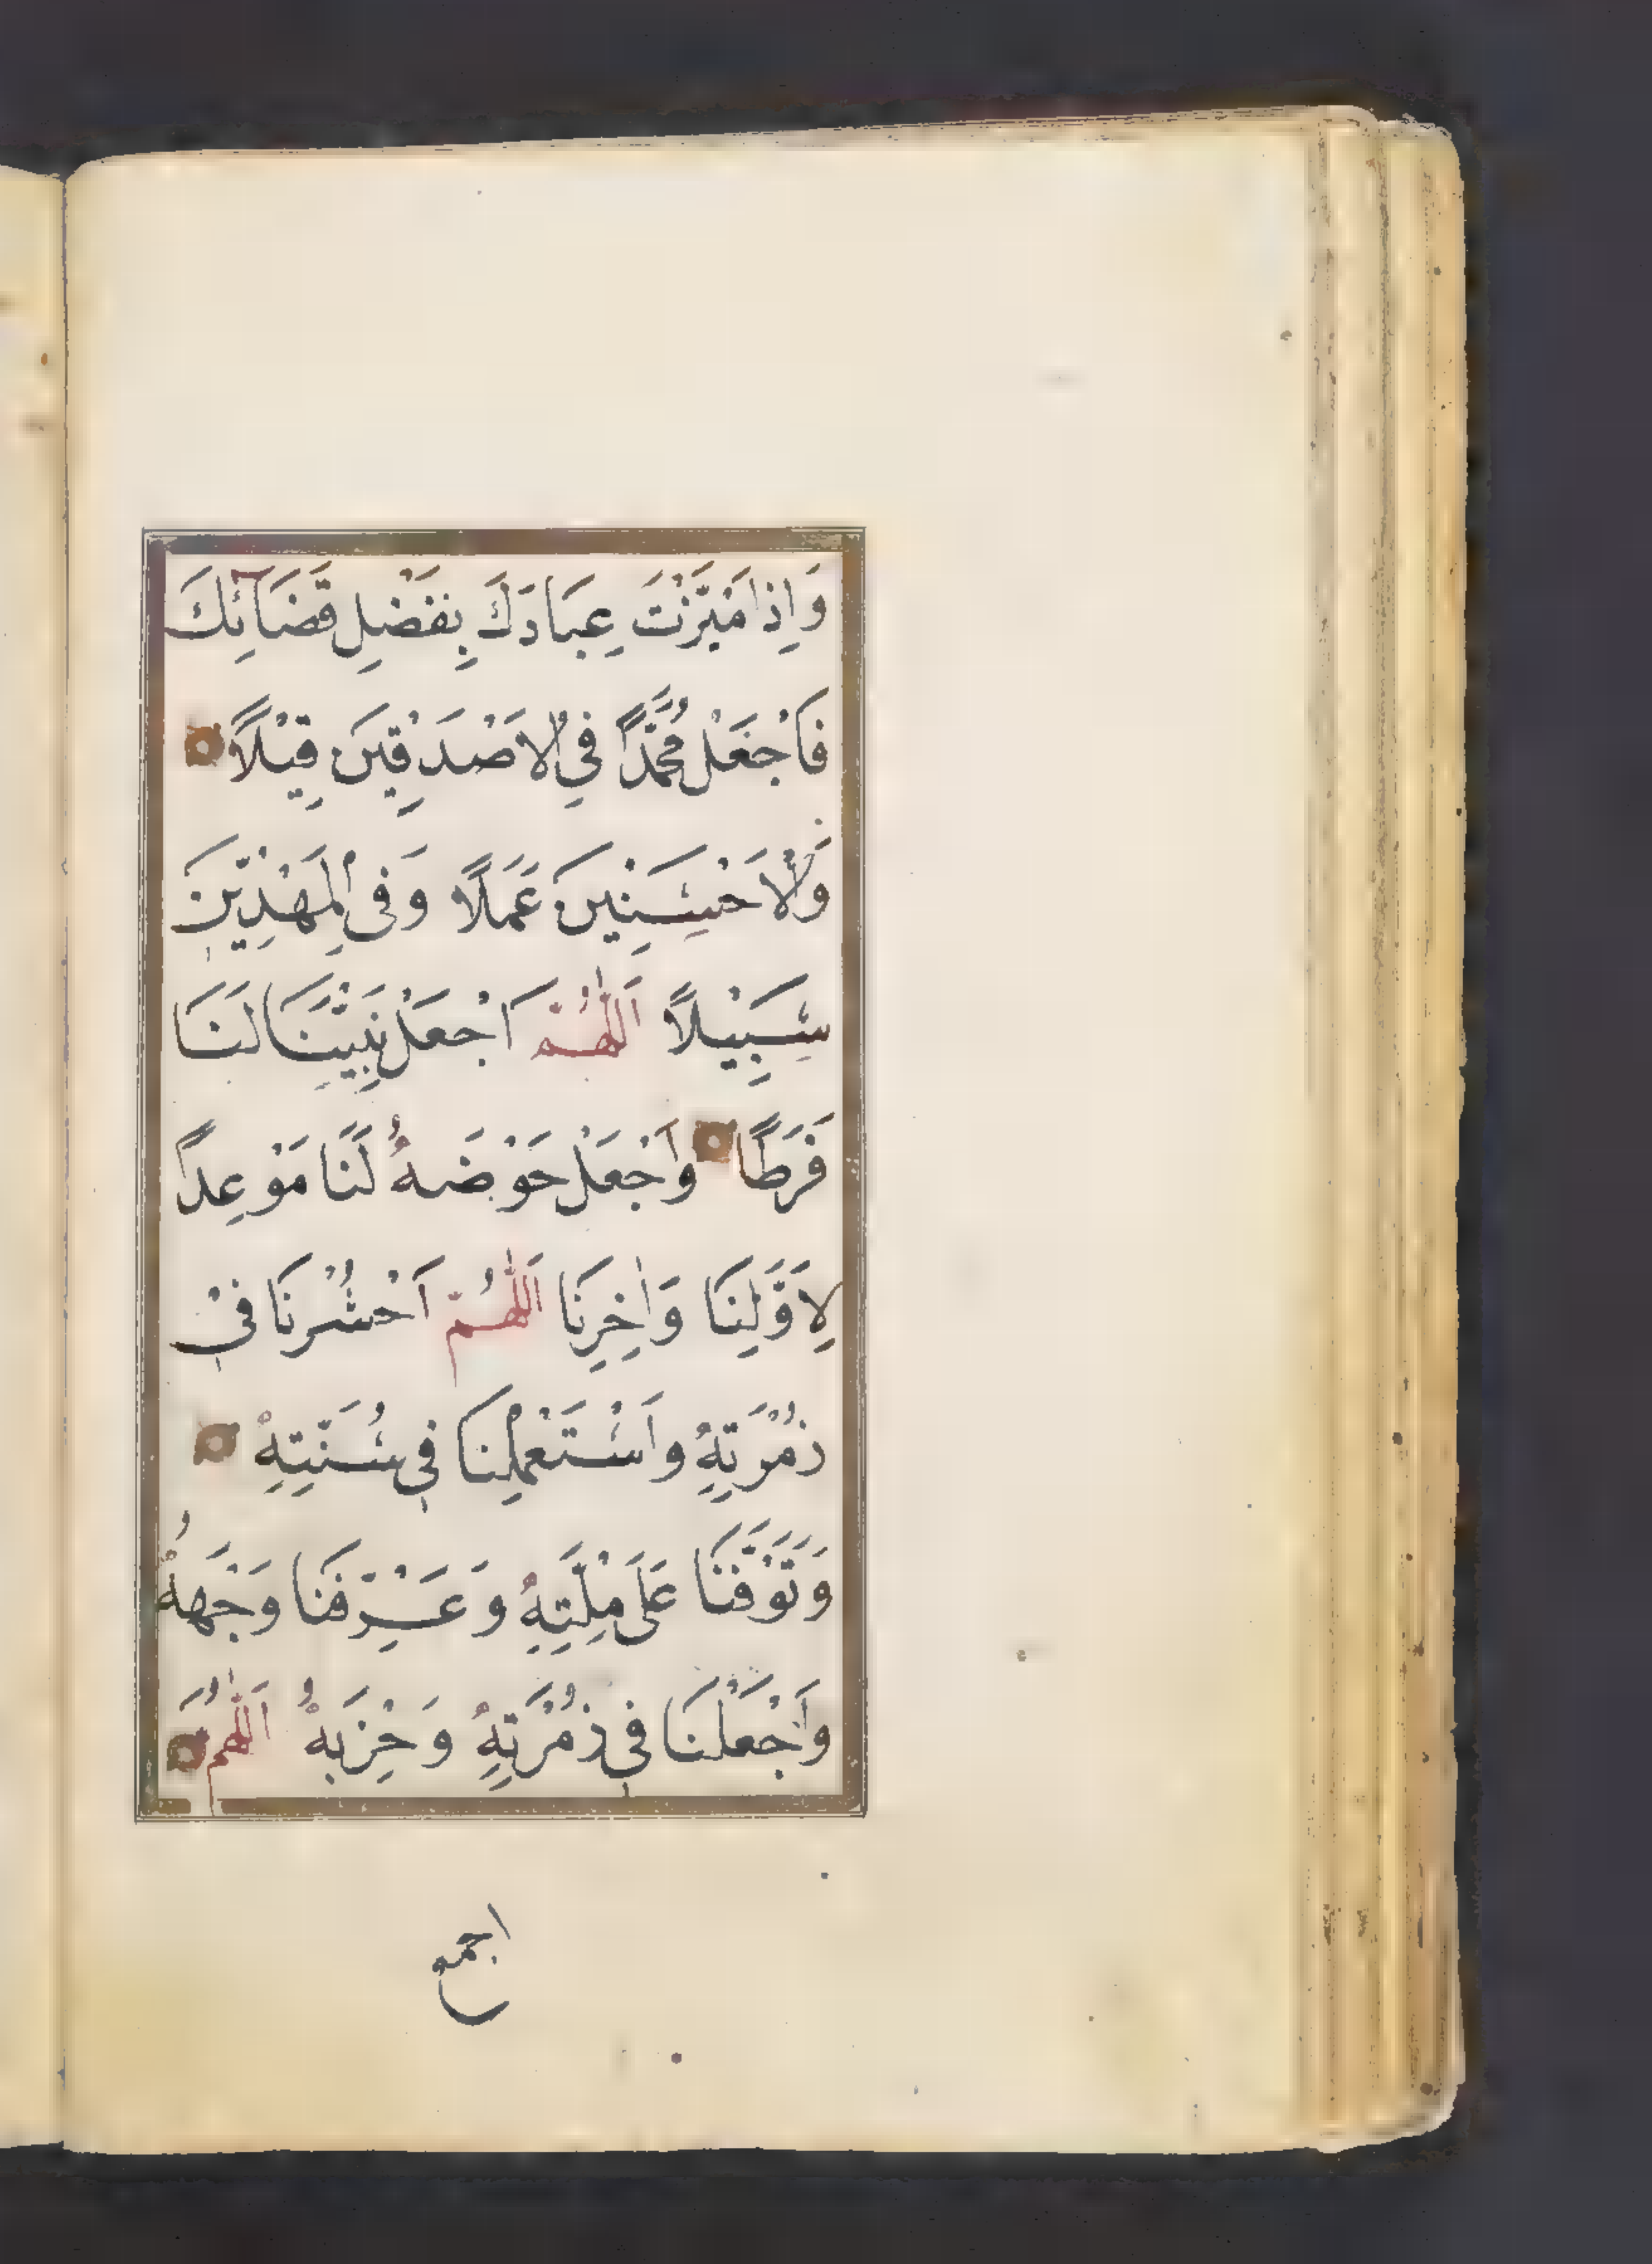 وَاِذَا مَيَّزْتَ عِبَادَكَ بِفَضْلِ قَضَآئِكَ
فَاجْعَلْ مُحَمَّدًا فِي الْاَصْدَقِيْنَ قِيْلًا
وَالْاَحْسَنِيْنَ عَمَلًا وَفِي الْمَهْدِيِّيْنَ
سَبِيْلًا اَللّٰهُمَّ اَجْعَلْ نَبِيَّنَا لَنَا
فَرَطًا وَاَجْعَلْ حَوْضَهُ لَنَا مَوْعِدًا
لِاَوَّلِنَا وَاٰخِرِنَا اَللّٰهُمَّ اَحْشُرْنَا فِيْ
ذُمْرَتِهِ وَاَسْتَعْمِلْنَا فِي سُنَّتِهِ
وَتَوَفَّنَا عَلَى مِلَّتِهِ وَعَرِّفْنَا وَجْهَهُ
وَاَجْعَلْنَا فِي ذُمْرَتِهِ وَحِزْبِهِ اَللّٰهُمَّ
اجمع